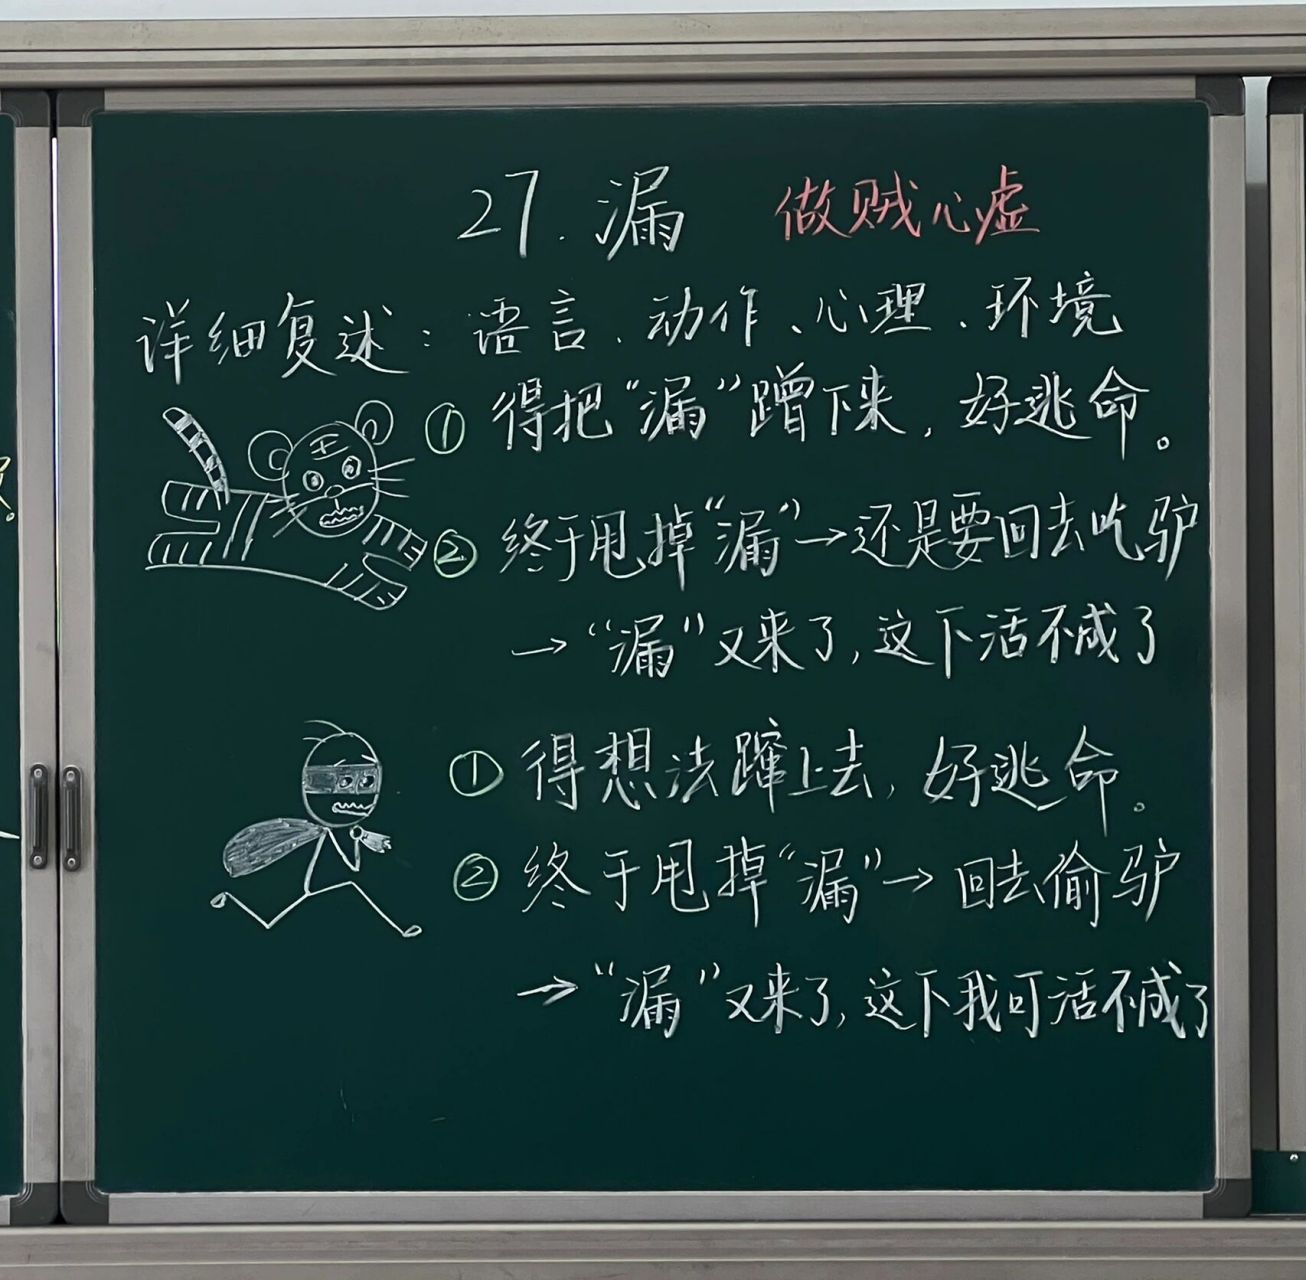 27. 漏 做贼心虚
详细复述：语言、动作、心理、环境
王
① 得把“漏”蹭下来，好逃命。
② 终于甩掉“漏”→还是要回去吃驴
→“漏”又来了，这下活不成了
① 得想法蹿上去，好逃命。
② 终于甩掉“漏”→回去偷驴
→“漏”又来了，这下我可活不成了